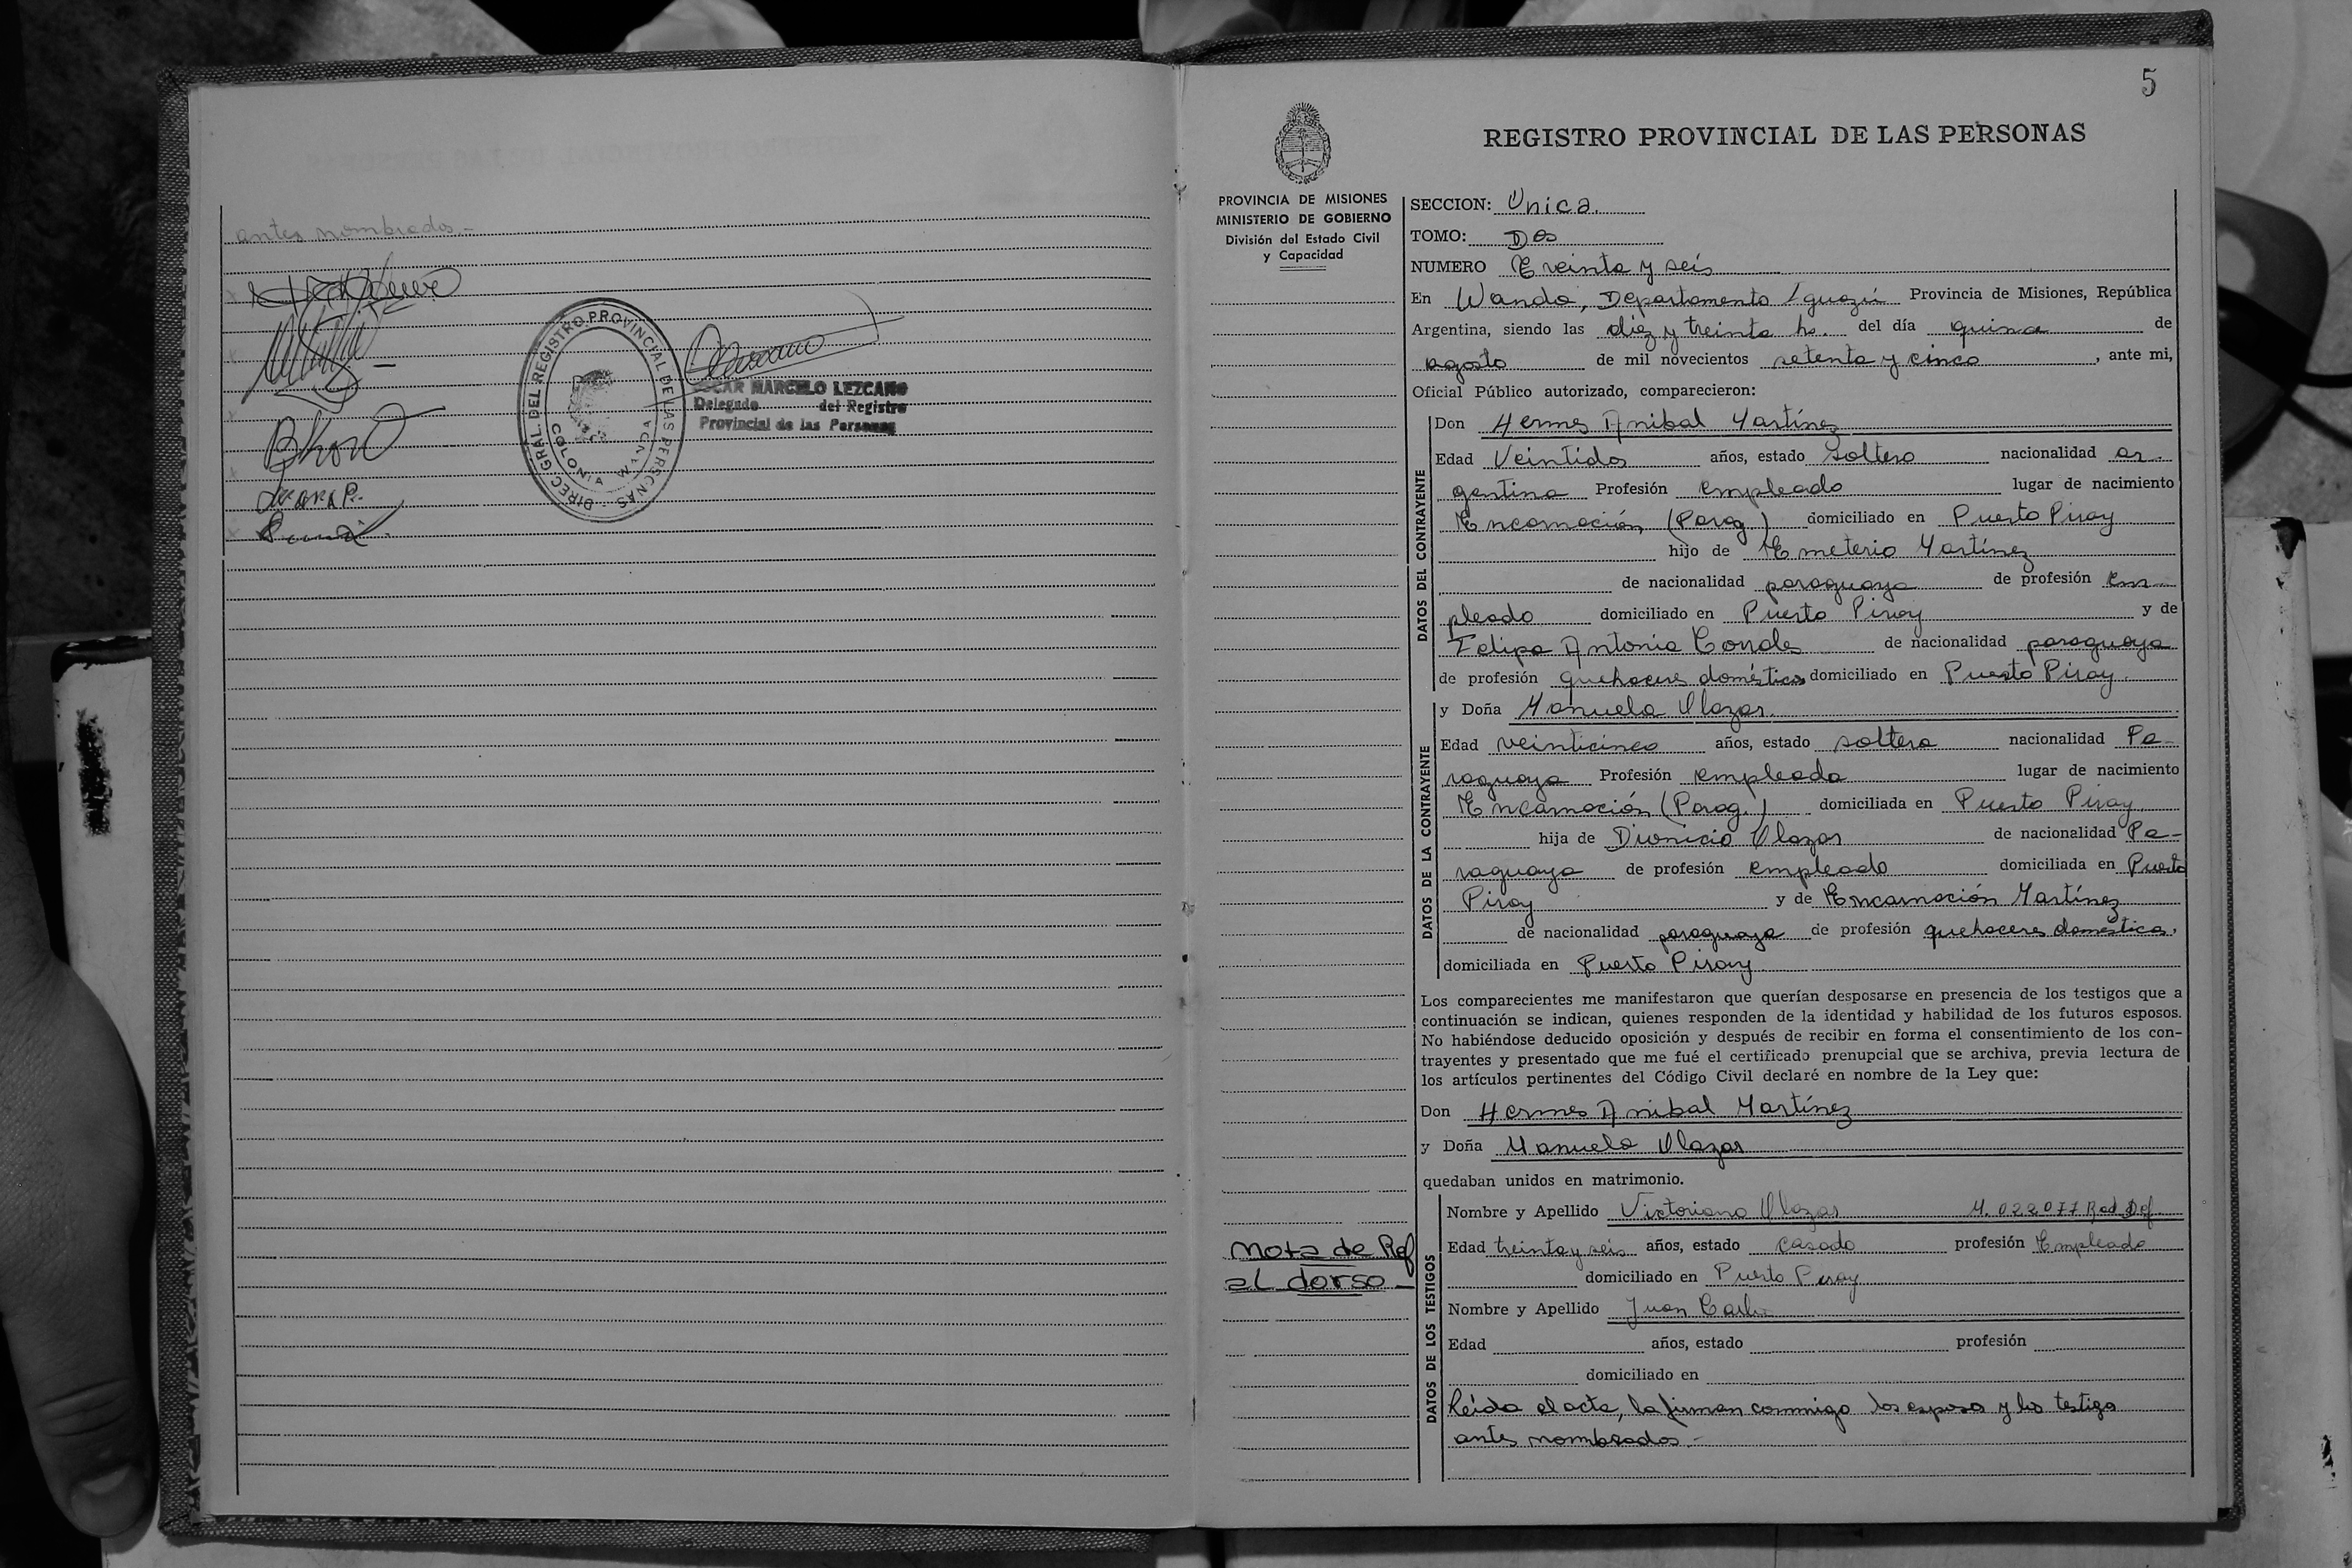 antes nombrados.-
DIREC. GRAL. DEL REGISTRO PROVINCIAL DE LAS PERSONAS
COLONIA WANDA
OSCAR MARCELO LEZCANO
Delegado del Registro
Provincial de las Personas
5
REGISTRO PROVINCIAL DE LAS PERSONAS
PROVINCIA DE MISIONES
MINISTERIO DE GOBIERNO
División del Estado Civil
y Capacidad
SECCION: Unica.
TOMO: Dos
NUMERO Treinta y seis
En Wanda, Departamento Iguazú Provincia de Misiones, República
Argentina, siendo las diez y treinta hs. del día quince de
agosto de mil novecientos setenta y cinco, ante mi,
Oficial Público autorizado, comparecieron:
DATOS DEL CONTRAYENTE
Don Hermes Anibal Martínez
Edad Veintidos años, estado Soltero nacionalidad ar-
gentina Profesión empleado lugar de nacimiento
Encarnación, (Parag.) domiciliado en Puerto Piray
hijo de Emeterio Martínez
de nacionalidad paraguaya de profesión em-
pleado domiciliado en Puerto Piray y de
Felipa Antonia de nacionalidad paraguaya
de profesión quehaceres domésticos domiciliado en Puerto Piray.
DATOS DE LA CONTRAYENTE
y Doña Manuela Olazar.
Edad veinticinco años, estado soltera nacionalidad Pa-
raguaya Profesión empleada lugar de nacimiento
Encarnación (Parag.) domiciliada en Puerto Piray
hija de Dionicio Olazar de nacionalidad Pa-
raguaya de profesión empleado domiciliada en Puerto
Piray y de Encarnación Martínez
de nacionalidad paraguaya de profesión quehaceres domésticos,
domiciliada en Puerto Piray
Los comparecientes me manifestaron que querían desposarse en presencia de los testigos que a
continuación se indican, quienes responden de la identidad y habilidad de los futuros esposos.
No habiéndose deducido oposición y después de recibir en forma el consentimiento de los con-
trayentes y presentado que me fué el certificado prenupcial que se archiva, previa lectura de
los artículos pertinentes del Código Civil declaré en nombre de la Ley que:
Don Hermes Anibal Martínez
y Doña Manuela Olazar
quedaban unidos en matrimonio.
Nota de Ref
al dorso-
DATOS DE LOS TESTIGOS
Nombre y Apellido Victoriano Olazar
Edad treinta y seis años, estado casado profesión Empleado
domiciliado en Puerto Piray
Nombre y Apellido Juan
Edad años, estado profesión
domiciliado en
Leída el acta, la firman conmigo los esposos y los testigos
antes nombrados.-